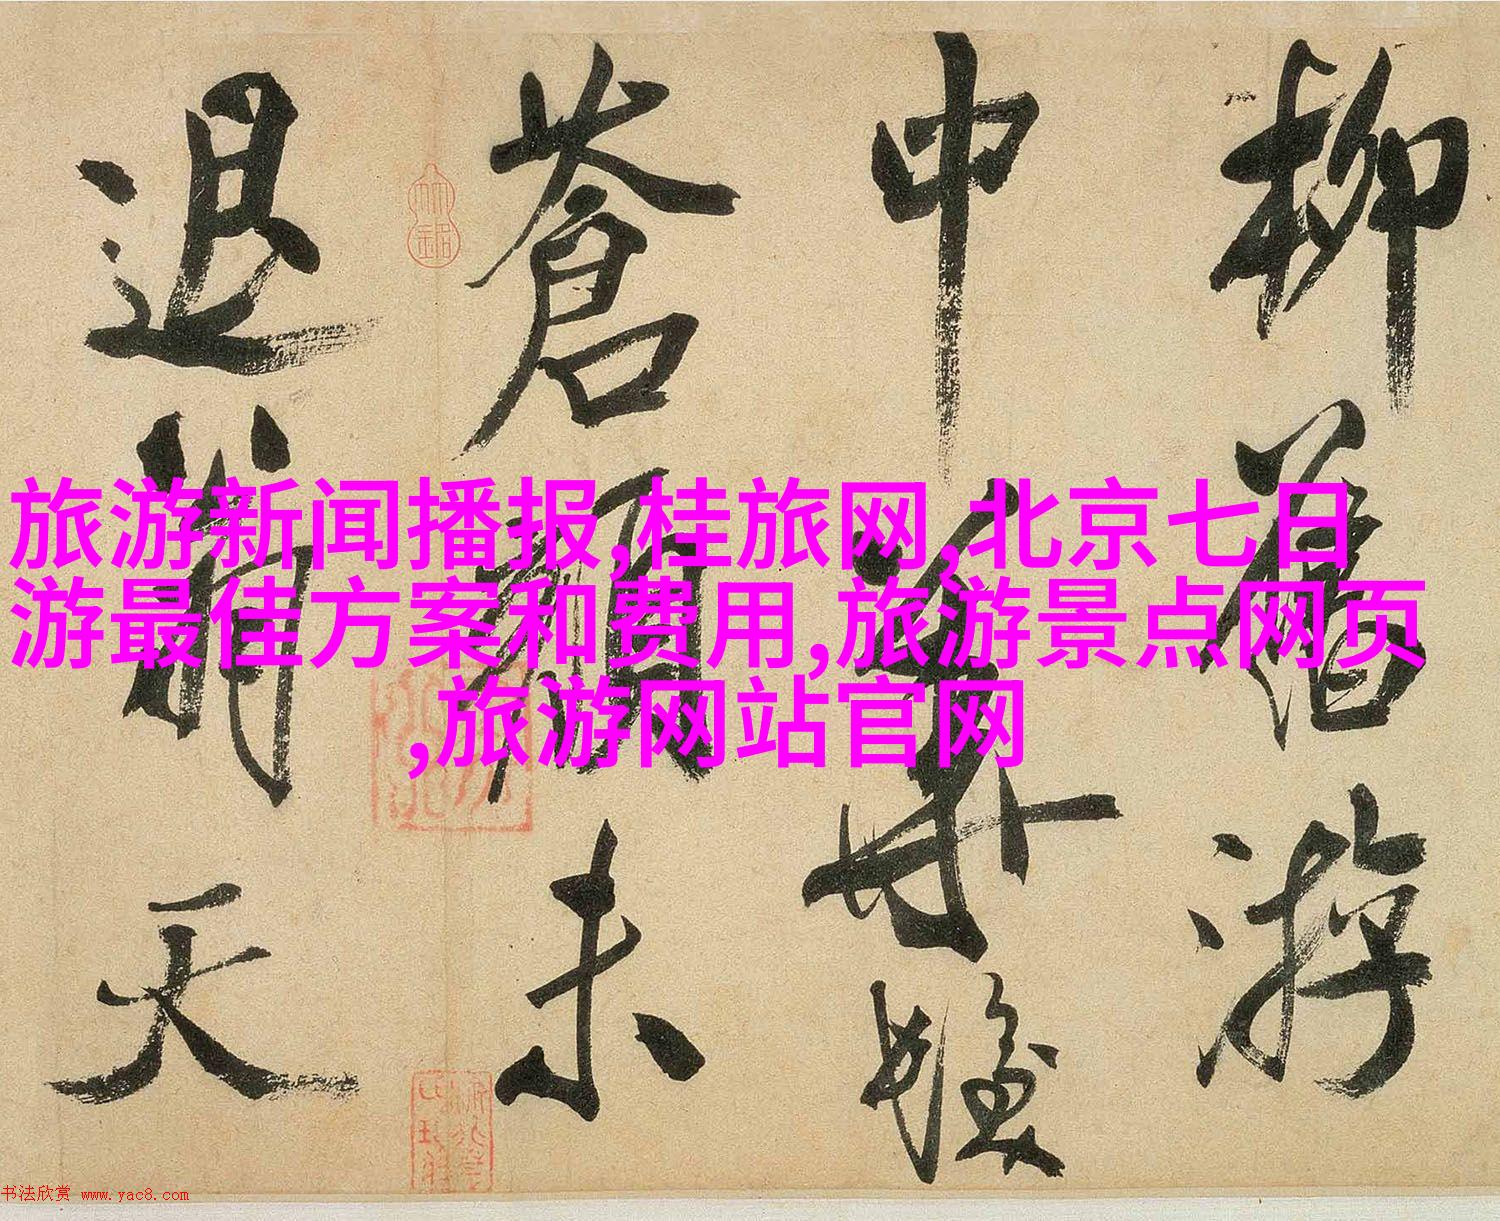 柳舊游
中華
蒼顏未
退天
旅游新闻播报,桂旅网,北京七日
游最佳方案和费用,旅游景点网页
,旅游网站官网
书法欣赏 www.yac8.com